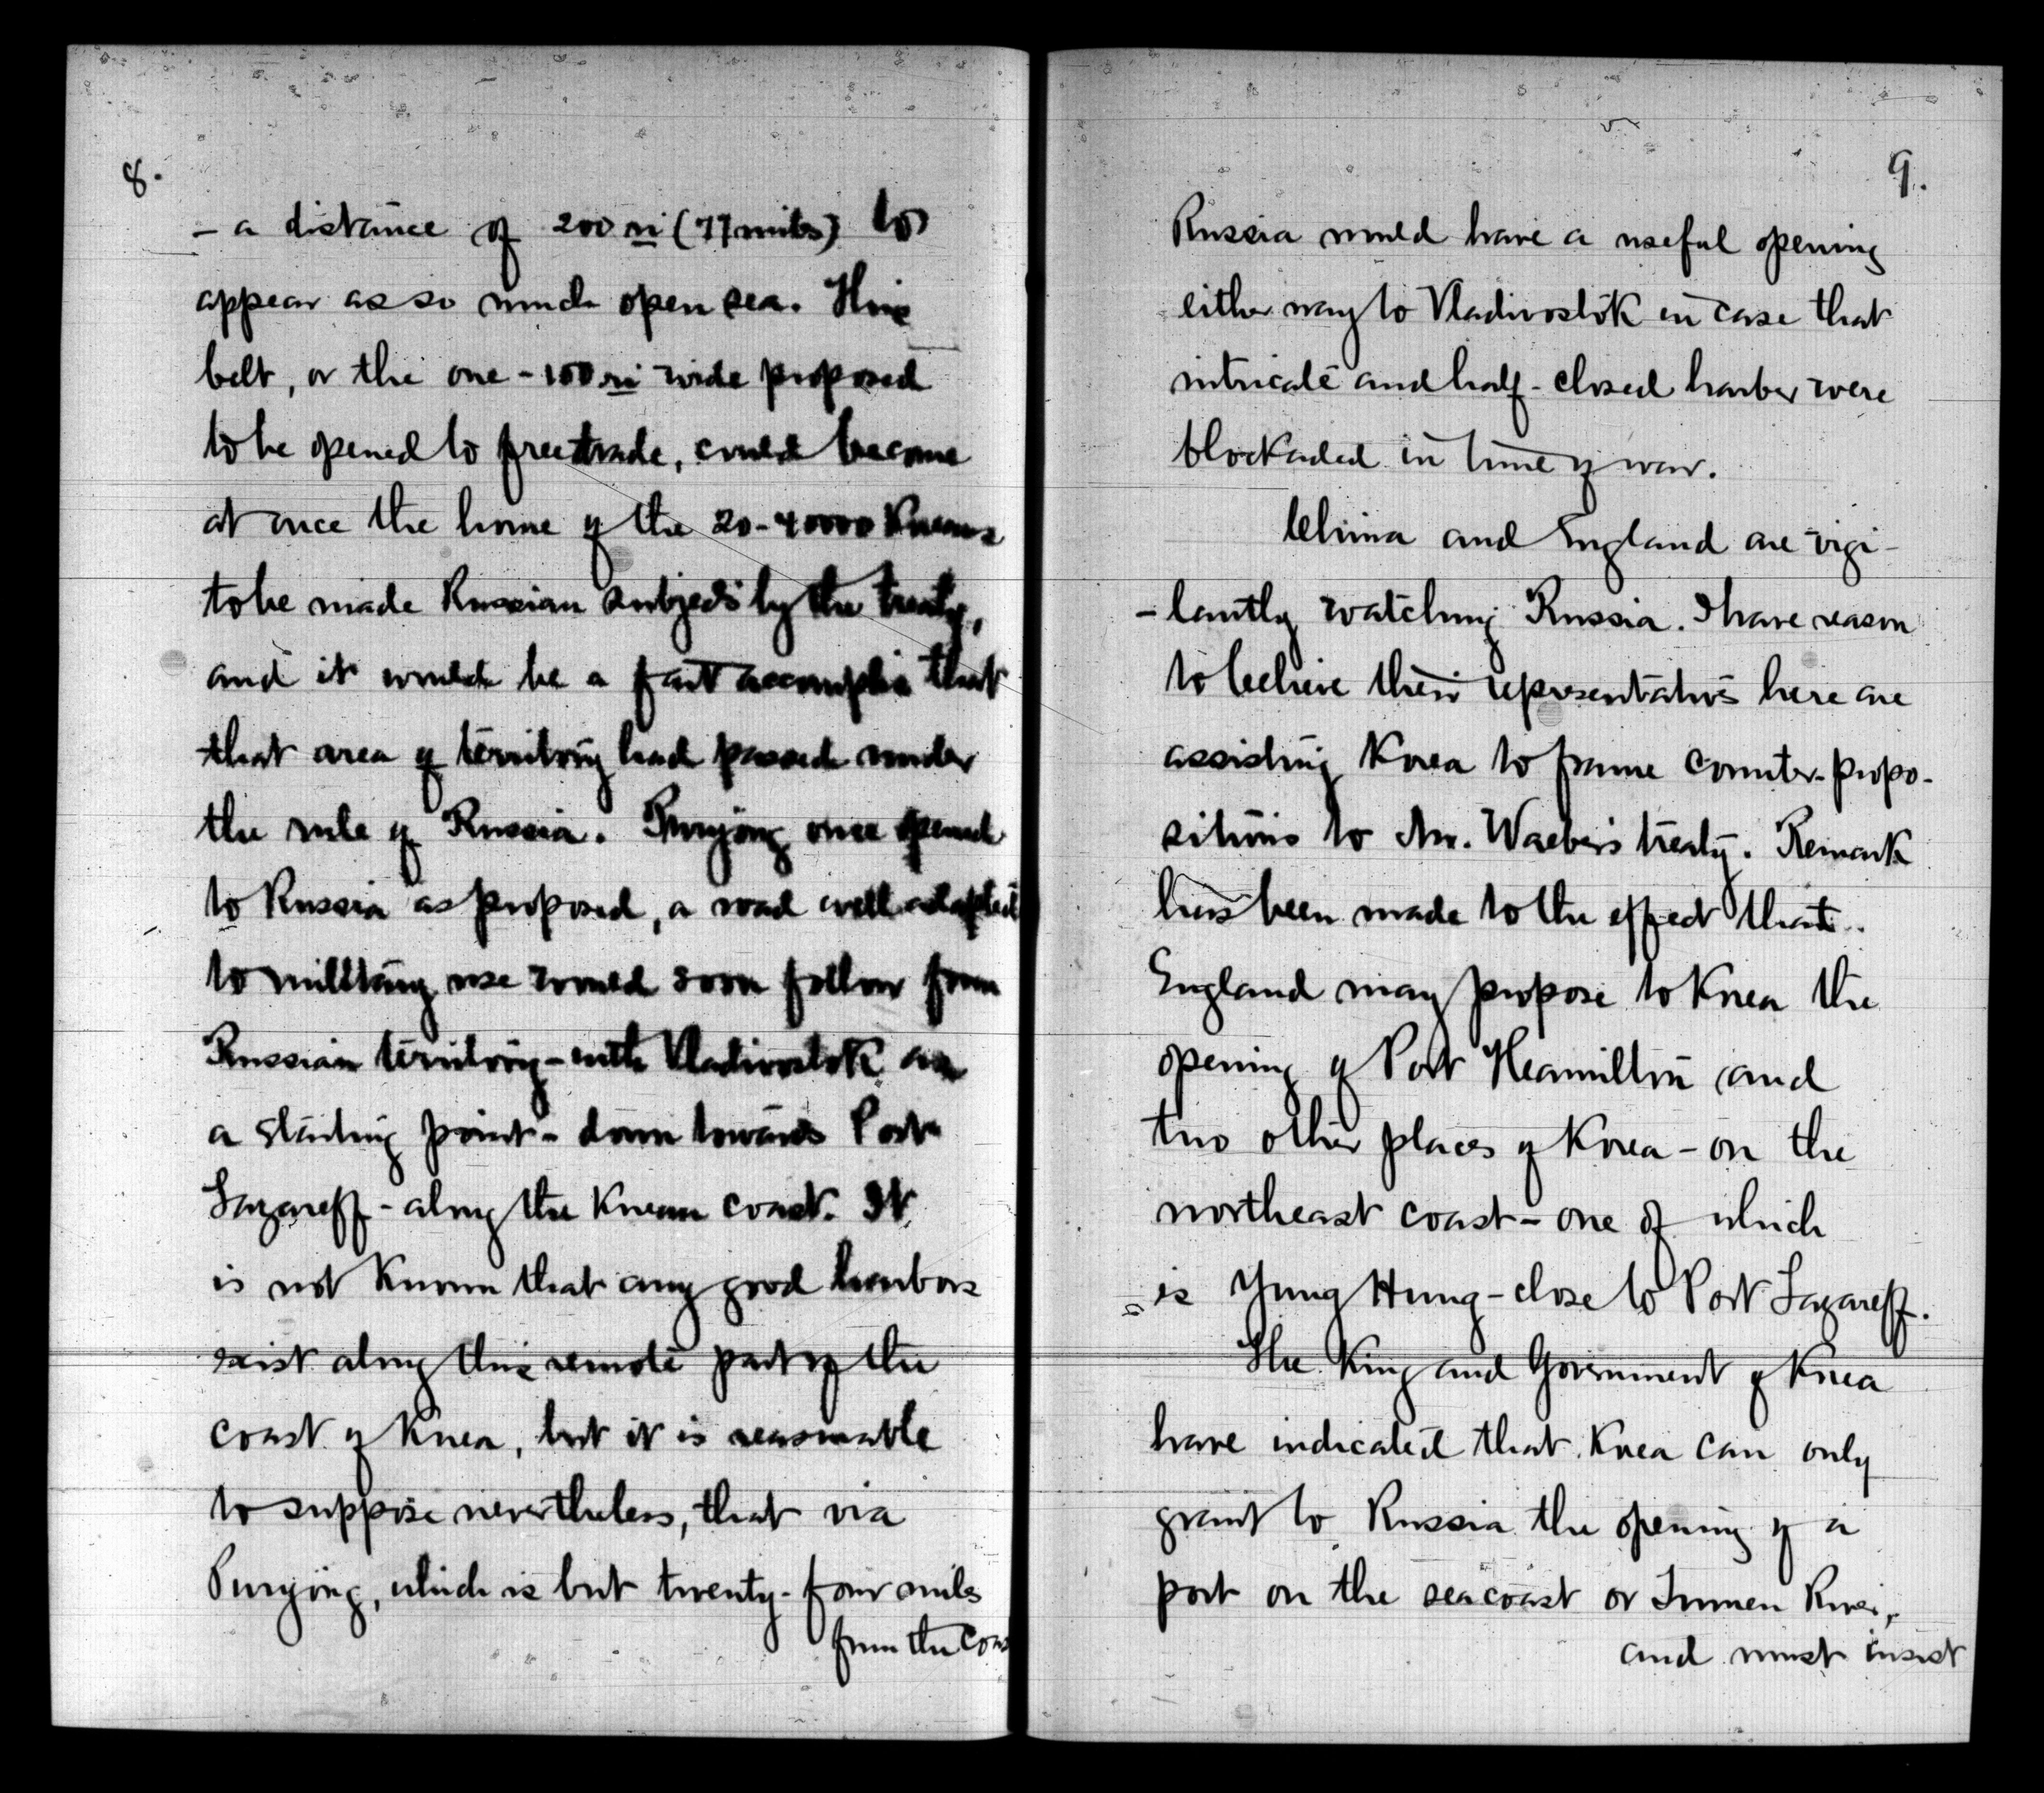 8.
- a distance of 200 ri (77 miles) to
appear as so much open sea. This
belt, or the one - 100 ri wide proposed
to be opened to free trade, could become
at once the home of the 20-40000 Koreans
to be made Russian subjects by the treaty,
and it would be a fait accomplis that
that area of territory had passed under
the rule of Russia. Puryöng once opened
to Russia as proposed, a road well adapted
to military use would soon follow from
Russian territory - with Vladivostok as
a starting point - down towards Port
Lazareff - along the Korean coast. It
is not known that any good harbors
exist along this remote part of the
coast of Korea, but it is reasonable
to suppose nevertheless, that via
Puryöng, which is but twenty-four miles
from the coas
9.
Russia would have a useful opening
either way to Vladivostok in case that
intricate and half-closed harbor were
blockaded in time of war.
China and England are vigi-
-lantly watching Russia. I have reason
to believe their representatives here are
assisting Korea to frame counter-propo-
sitions to Mr. Waeber's treaty. Remark
has been made to the effect that
England may propose to Korea the
opening of Port Hamilton and
two other places of Korea - on the
northeast coast - one of which
is Yung Hung - close to Port Lazareff.
The King and Government of Korea
have indicated that Korea can only
grant to Russia the opening of a
port on the seacoast or Tumen River,
and must insist